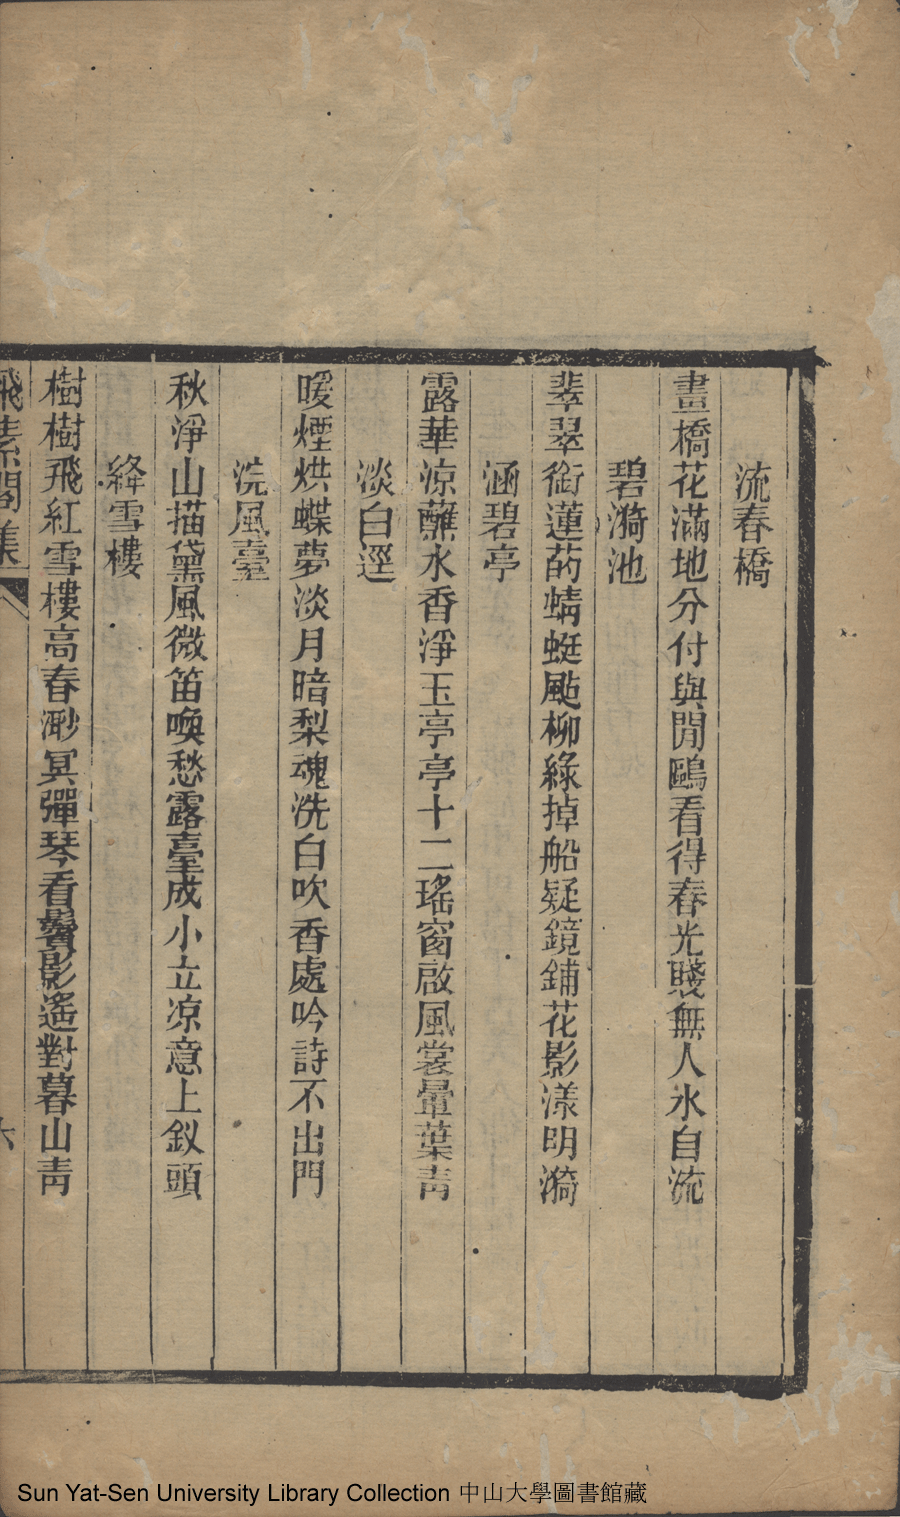 流春橋
畫橋花滿地分付與閒鷗看得春光賤無人水自流
碧漪池
翡翠銜蓮菂蜻蜓颭柳綠掉船疑鏡鋪花影漾明漪
涵碧亭
露華涼蘸水香淨玉亭亭十二瑤窗啟風裳暈葉靑
淡白逕
暖煙烘蝶夢淡月暗梨魂洗白吹香處吟詩不出門
浣風臺
秋淨山描黛風微笛喚愁露臺成小立凉意上釵頭
絳雪樓
樹樹飛紅雪樓高春渺冥彈琴看鬢影遙對暮山靑
飛素閣集
六
Sun Yat-Sen University Library Collection 中山大學圖書館藏